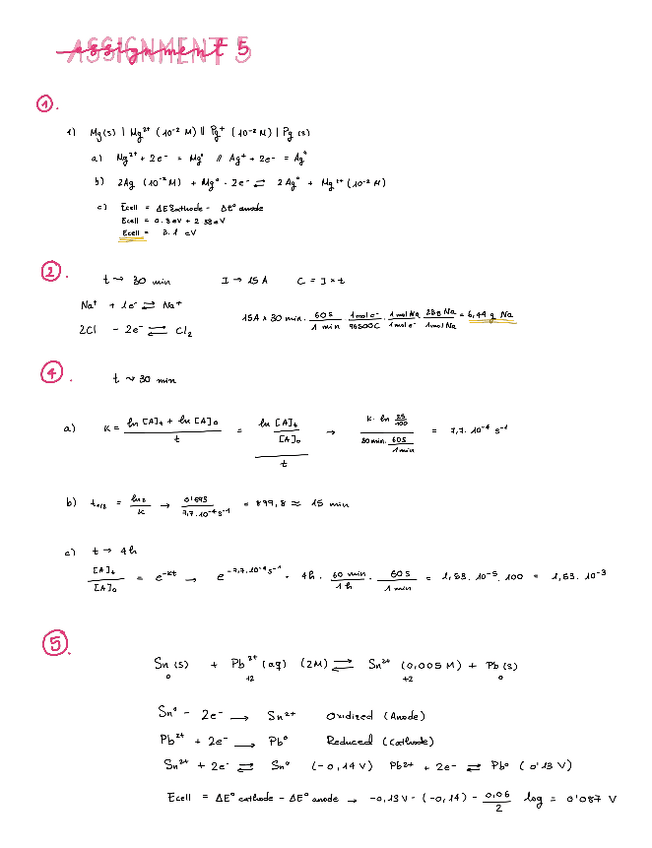 ASSIGNMENT 5
assignment
1.
1) Mg(s) | Mg²⁺ (10⁻² M) || Pg⁺ (10⁻² M) | Pg (s)
a) Mg²⁺ + 2e⁻ = Mg⁰ // Ag⁺ + 2e⁻ = Ag⁰
b) 2Ag (10⁻² M) + Mg⁰ - 2e⁻ ⇌ 2Ag⁰ + Mg²⁺ (10⁻² M)
c) Ecell = ΔE⁰cathode - ΔE⁰ anode
Ecell =
Ecell = 3.1 eV
2.
t → 30 min I → 15A C = I × t
Na⁺ + 1e⁻ ⇌ Na⁺
2Cl - 2e⁻ ⇌ Cl₂
15A × 30 min · 60s/1 min · 1mol e⁻/96500C · 1mol Na/1mol e⁻ · 23g Na/1mol Na = 6,44 g Na
4.
t → 30 min
a) K = (ln [A]ₜ + ln [A]₀)/t = (ln [A]ₜ/[A]₀)/t → (K · ln 25/100)/(30min · 60s/1 min) = 7,7 · 10⁻⁴ s⁻¹
b) t₁/₂ = ln2/K → 0'693/7,7·10⁻⁴ s⁻¹ = 899,8 ≈ 15 min
c) t → 4h
[A]ₜ/[A]₀ = e⁻ᴷᵗ → e^(-7,7·10⁻⁴ s⁻¹) · 4h · 60 min/1 h · 60s/1 min = 1,53 · 10⁻⁵ · 100 = 1,53 · 10⁻³
5.
Sn (s) + Pb²⁺ (aq) (2M) ⇌ Sn²⁺ (0,005 M) + Pb (s)
0 +2 +2 0
Sn⁰ - 2e⁻ → Sn²⁺ Oxidized (Anode)
Pb²⁺ + 2e⁻ → Pb⁰ Reduced (Cathode)
Sn²⁺ + 2e⁻ ⇌ Sn⁰ (-0,14V) Pb²⁺ + 2e⁻ ⇌ Pb⁰ (0'13 V)
Ecell = ΔE⁰ cathode - ΔE⁰ anode → -0,13V - (-0,14) - 0,06/2 log = 0'087 V